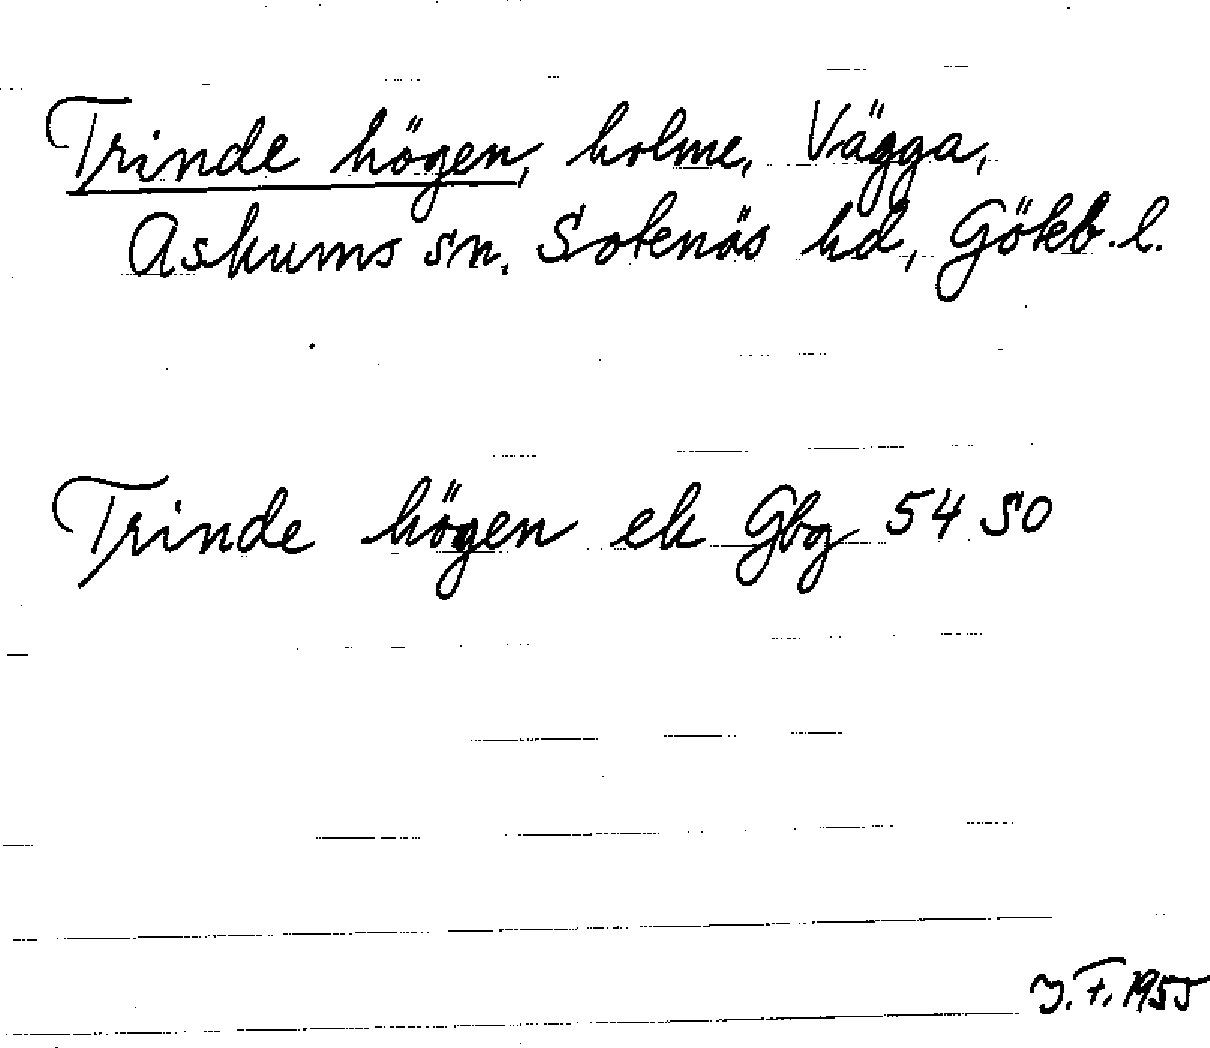 Trinde högen, holme, Vägga,
Askums sn, Sotenäs hd, Göteb. l.
Trinde högen ek Gbg 54 SO
J. F. 1955